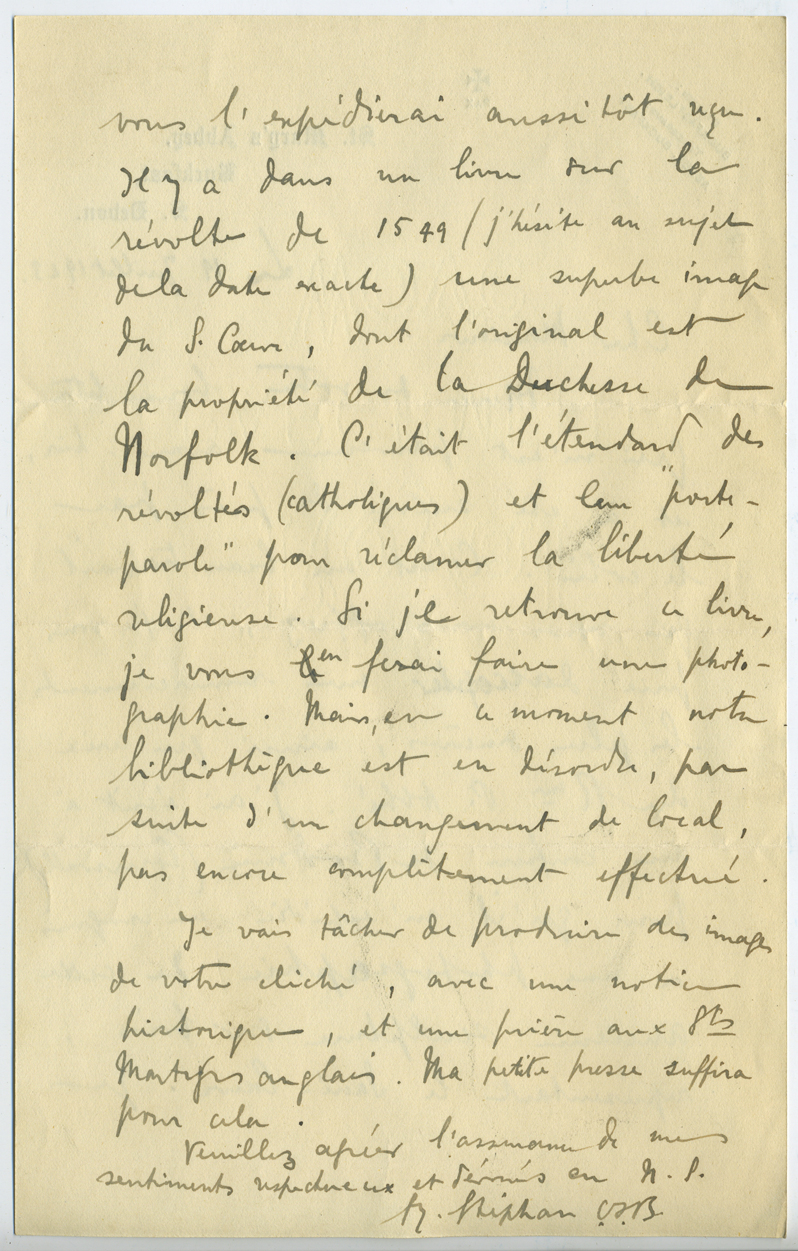 vous l'expédierai aussitôt reçu.
Il y a dans un livre sur la
révolte de 1549 (j'hésite au sujet
de la date exacte) une superbe image
du S. Cœur, dont l'original est
la propriété de la Duchesse de
Norfolk. C'était l'étendard des
révoltés (catholiques) et leur "porte-
parole" pour réclamer la liberté
religieuse. Si je retrouve ce livre,
je vous en ferai faire une photo-
graphie. Mais, en ce moment notre
bibliothèque est en désordre, par
suite d'un changement de local,
pas encore complètement effectué.
Je vais tâcher de produire des images
de votre cliché, avec une notice
historique, et une prière aux Sts
Martyrs anglais. Ma petite presse suffira
pour cela.
Veuillez agréer l'assurance de mes
sentiments respectueux et dévoués en N. S.
Stéphan O.S.B.